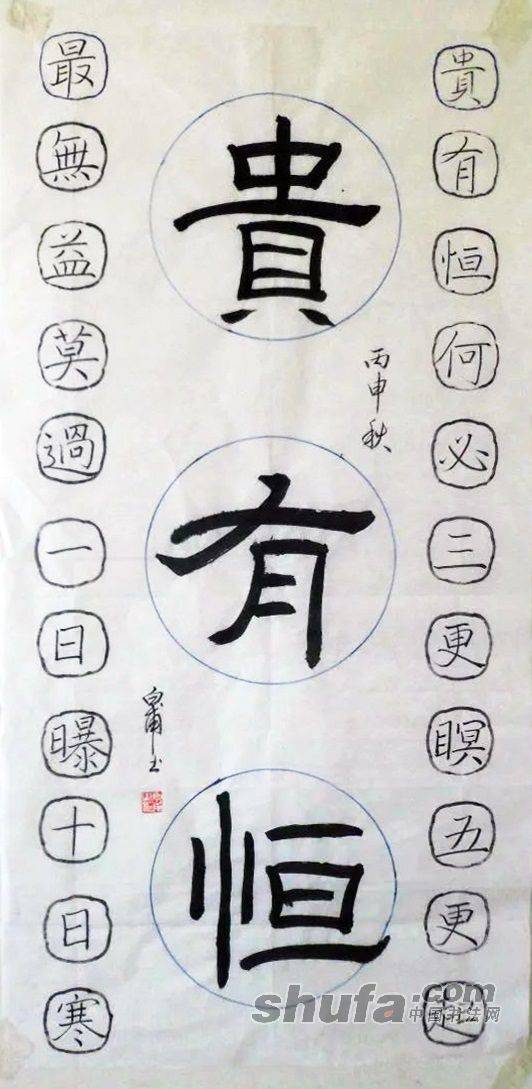 貴有恒何必三更瞑五更起
貴有恒
丙申秋
最無益莫過一日曝十日寒
shufa.com
中国书法网